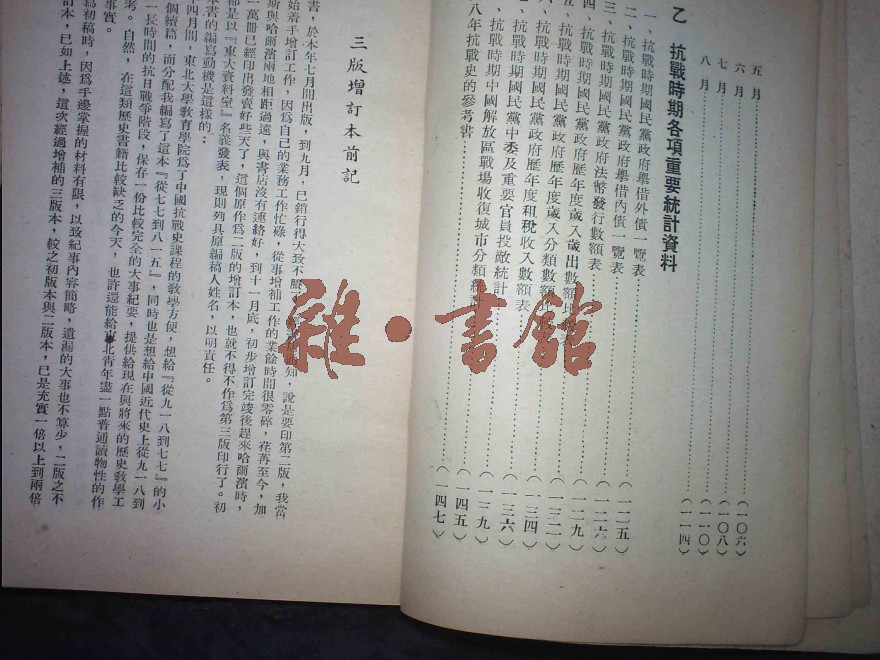 五月……（一〇六）
六月……（一〇八）
七月……（一一〇）
八月……（一一四）
乙 抗戰時期各項重要統計資料
一、抗戰時期國民黨政府舉借外債一覽表……（一二五）
二、抗戰時期國民黨政府舉借內債一覽表……（一二六）
三、抗戰時期國民黨政府法幣發行數額表……（一二九）
四、抗戰時期國民黨政府歷年度歲入歲出數額
五、抗戰時期國民黨政府歷年度歲入分類數額
六、抗戰時期國民黨政府歷年度租稅收入數額表……（一三六）
抗戰時期國民黨中委及重要官員投敵統計
抗戰時期中國解放區戰場收復城市分類統計……（一四五）
八年抗戰史的參考書……（一四七）
三版增訂本前記
書，於本年七月間出版，到九月，已銷行得大致不
知，說是要印第二版，我當
始着手增訂工作，因爲自己的業務工作忙碌，從事增補工作的業餘時間很零碎，荏苒至今，加
斯與哈爾濱兩地相距過遠，與書店沒有連絡好，到十一月底，初步增訂完竣後趕來哈爾濱時，
萬冊已經印出發賣好些天了，這個原作爲二版的增訂本，也就不得不作爲第三版印行了。初
都是以『東大資料室』名義發表，現則列具原編稿人姓名，以明責任。
本書的編寫動機是這樣的：
四月間，東北大學敎育學院爲了中國抗戰史課程的敎學方便，想給『從九一八到七七』的小
個續篇，而分配我編寫了這本『從七七到八一五』，同時也是想給中國近代史上從九一八到
一長時間的抗日戰爭階段，保存一份比較完全的大事紀要，提供給現在與將來的歷史敎學工
考。自然，在這類歷史書籍比較缺乏的今天，也許還能給東北靑年盡一點普通讀物性的作
事實。
寫初稿時，因爲手邊掌握的材料有限，以致紀事內容簡略，遺漏的大事也不算少，二版之不
訂本，已如上述，這次經過增補的三版本，較之初版本與二版本，已是充實一倍以上到兩倍
雜·書館